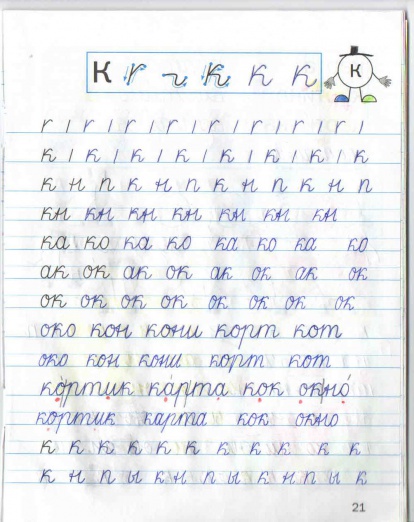 К г г к к к К
г ı г ı г ı г ı г ı г ı г ı г ı
к ı к ı к ı к ı к ı к ı к ı к
к н п к н п к н п к н п
кн кн кн кн кн кн кн
ка ко ка ко ка ко ка ко
ак ок ак ок ак ок ак ок
ок ок ок ок ок ок ок ок
око кон кони корт кот
око кон кони корт кот
ко́ртик ка́рта кок окно́
кортик карта кок окно
к к к к к к к к к к к
к н п ы к н п ы к н п ы к
21